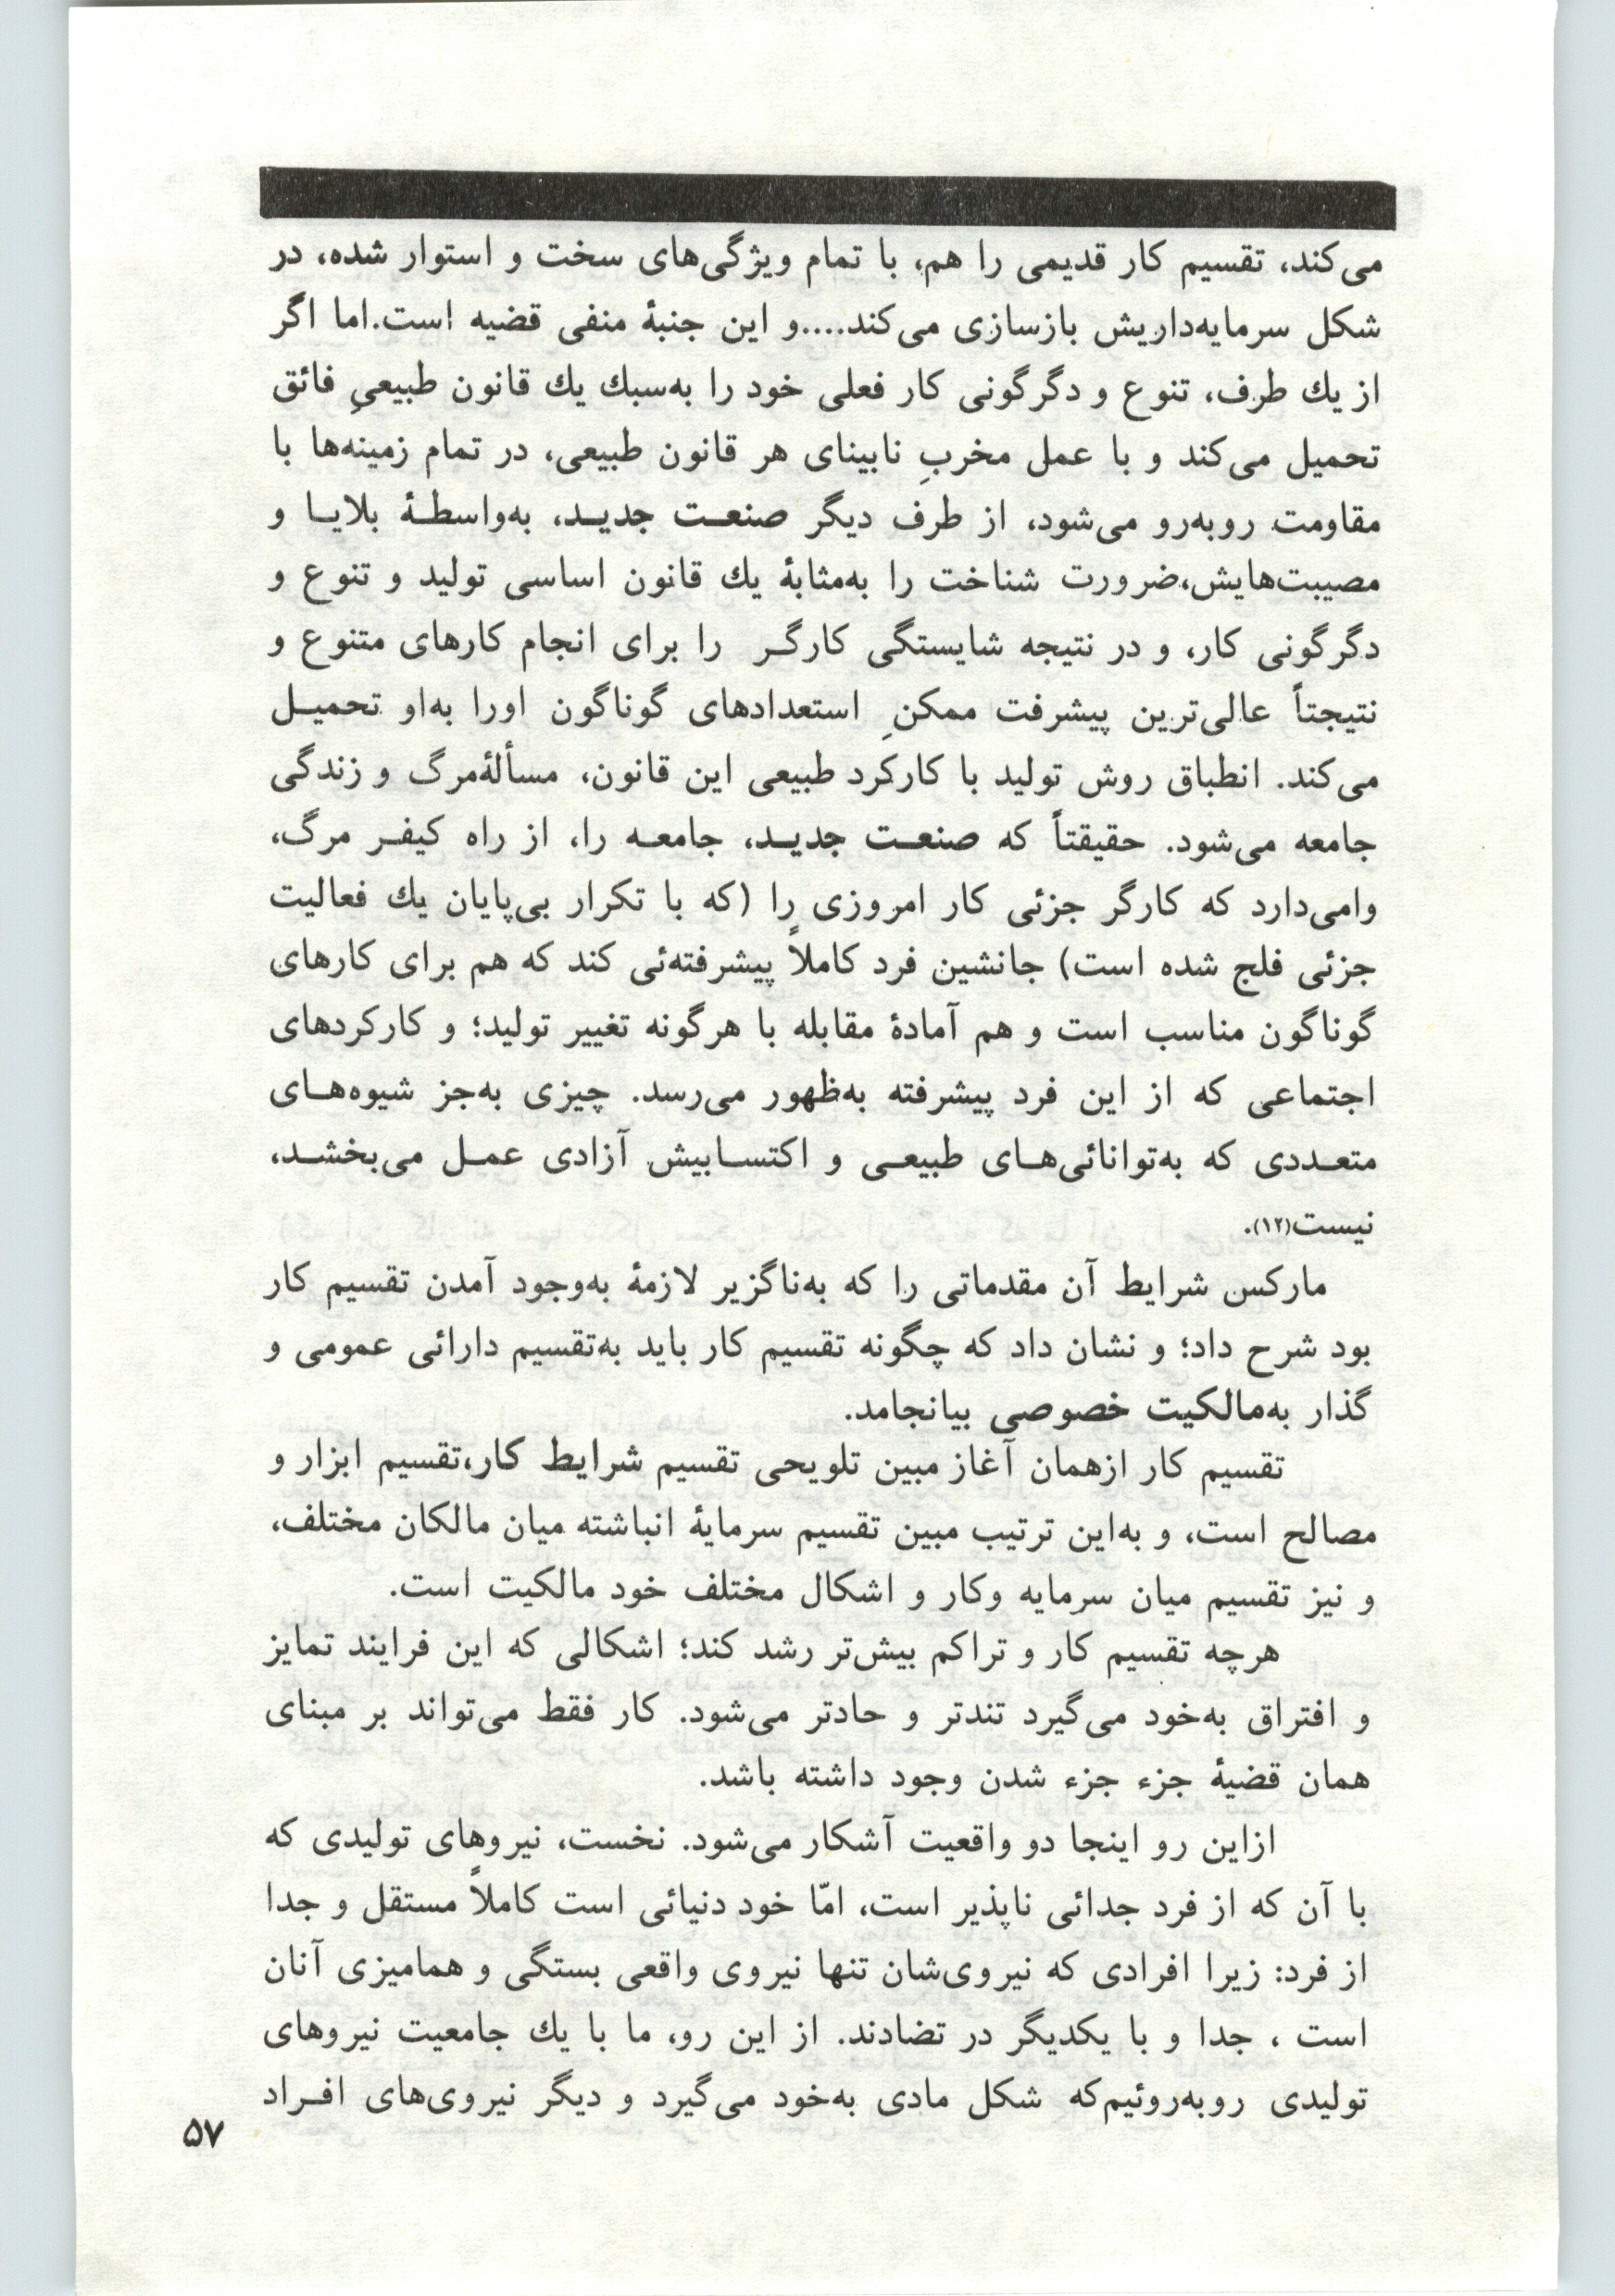 می‌کند، تقسیم کار قدیمی را هم، با تمام ویژگی‌های سخت و استوار شده، در
شکل سرمایه‌داریش بازسازی می‌کند....و این جنبۀ منفی قضیه است.اما اگر
از یك طرف، تنوع و دگرگونی کار فعلی خود را به‌سبك یك قانون طبیعیِ فائق
تحمیل می‌کند و با عمل مخربِ نابینای هر قانون طبیعی، در تمام زمینه‌ها با
مقاومت روبه‌رو می‌شود، از طرف دیگر صنعـت جدیـد، به‌واسطـۀ بلایـا و
مصیبت‌هایش،ضرورت شناخت را به‌مثابۀ یك قانون اساسی تولید و تنوع و
دگرگونی کار، و در نتیجه شایستگی کارگـر را برای انجام کارهای متنوع و
نتیجتاً عالی‌ترین پیشرفت ممکنِ استعدادهای گوناگون اورا به‌او تحمیـل
می‌کند. انطباق روش تولید با کارکرد طبیعی این قانون، مسألۀمرگ و زندگی
جامعه می‌شود. حقیقتاً که صنعـت جدیـد، جامعـه را، از راه کیفـر مرگ،
وامی‌دارد که کارگر جزئی کار امروزی را (که با تکرار بی‌پایان یك فعالیت
جزئی فلج شده است) جانشین فرد کاملاً پیشرفته‌ئی کند که هم برای کارهای
گوناگون مناسب است و هم آمادۀ مقابله با هرگونه تغییر تولید؛ و کارکردهای
اجتماعی که از این فرد پیشرفته به‌ظهور می‌رسد. چیزی به‌جز شیوه‌هـای
متعـددی که به‌توانائی‌هـای طبیعـی و اکتسـابیش آزادی عمـل می‌بخشـد،
نیست(۱۲).
مارکس شرایط آن مقدماتی را که به‌ناگزیر لازمۀ به‌وجود آمدن تقسیم کار
بود شرح داد؛ و نشان داد که چگونه تقسیم کار باید به‌تقسیم دارائی عمومی و
گذار به‌مالکیت خصوصی بیانجامد.
تقسیم کار ازهمان آغاز مبین تلویحی تقسیم شرایط کار،تقسیم ابزار و
مصالح است، و به‌این ترتیب مبین تقسیم سرمایۀ انباشته میان مالکان مختلف،
و نیز تقسیم میان سرمایه وکار و اشکال مختلف خود مالکیت است.
هرچه تقسیم کار و تراکم بیش‌تر رشد کند؛ اشکالی که این فرایند تمایز
و افتراق به‌خود می‌گیرد تندتر و حادتر می‌شود. کار فقط می‌تواند بر مبنای
همان قضیۀ جزء جزء شدن وجود داشته باشد.
ازاین رو اینجا دو واقعیت آشکار می‌شود. نخست، نیروهای تولیدی که
با آن که از فرد جدائی ناپذیر است، امّا خود دنیائی است کاملاً مستقل و جدا
از فرد: زیرا افرادی که نیروی‌شان تنها نیروی واقعی بستگی و همامیزی آنان
است ، جدا و با یکدیگر در تضادند. از این رو، ما با یك جامعیت نیروهای
تولیدی روبه‌روئیم‌که شکل مادی به‌خود می‌گیرد و دیگر نیروی‌های افـراد
۵۷